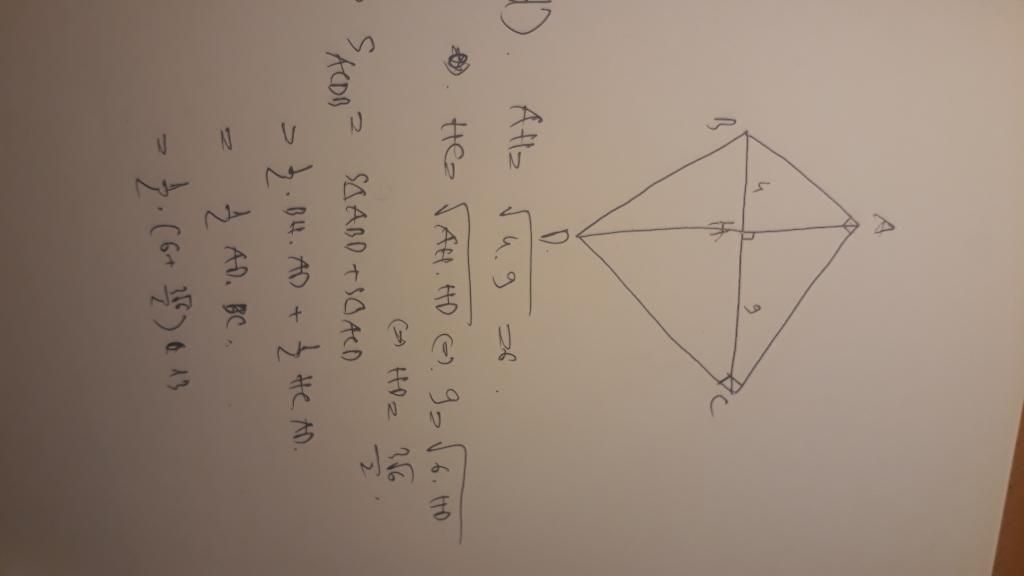 A
B
4
H
9
C
D
d).
AH = √4.9 = 6.
HC = √AH.HD (=). 9 = √6.HD
(=) HD = 3√6/2.
S ACDB = SΔABD + SΔACD
= 1/2. BH. AD + 1/2 HC AD.
= 1/2 AD. BC.
= 1/2. (6+ 3√6/2). 13